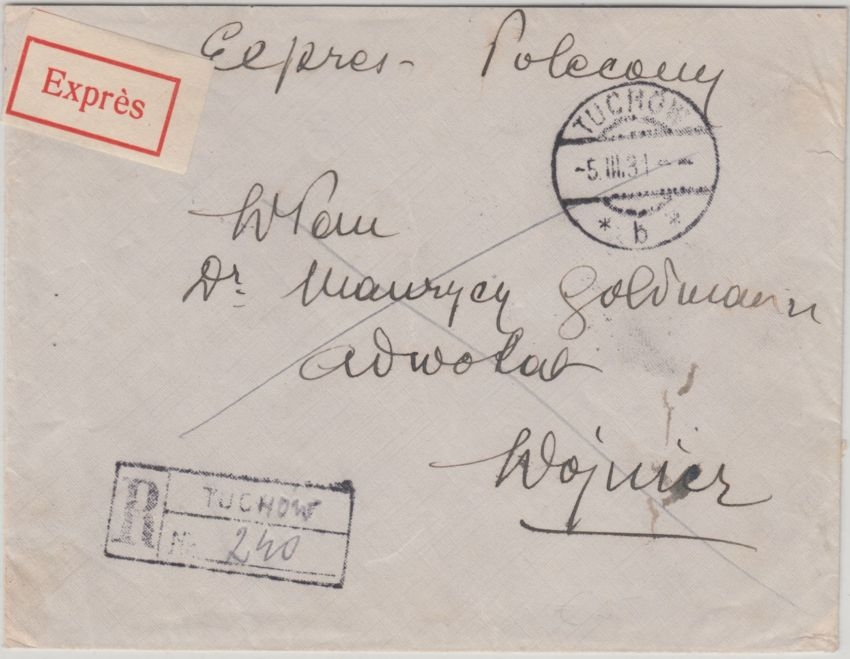 Expres - Polecony
Exprès
TUCHÓW
-5.III.31
* b *
WPan
Dr. Maurycy Goldmann
adwokat
Wojnicz
R
TUCHOW
Nr. 240